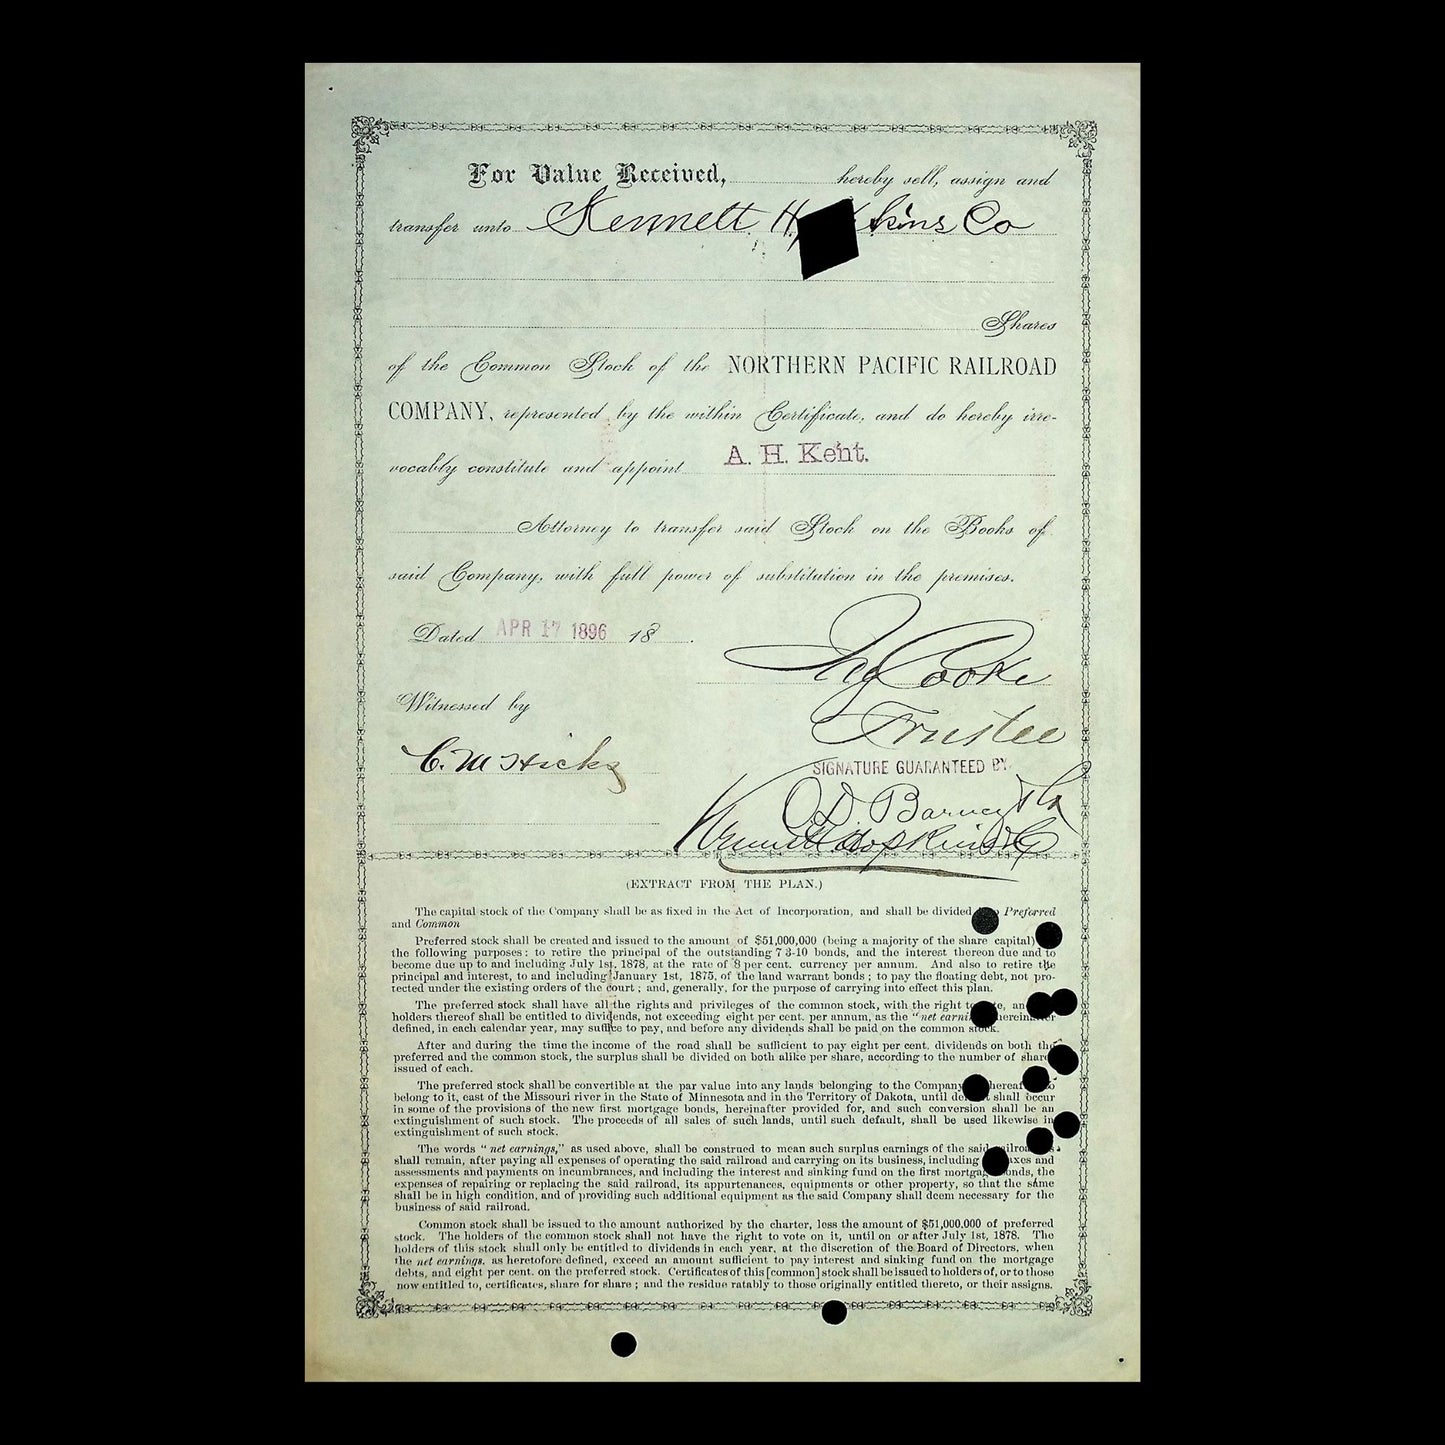 For Value Received, hereby sell, assign and
transfer unto Kennett H kins Co
Shares
of the Common Stock of the NORTHERN PACIFIC RAILROAD
COMPANY, represented by the within Certificate, and do hereby irre-
vocably constitute and appoint A. H. Kent.
Attorney to transfer said Stock on the Books of
said Company, with full power of substitution in the premises.
Dated APR 17 1896 18
Jay Cooke
Trustee
Witnessed by
C. M Hicks
SIGNATURE GUARANTEED BY
C D. Barney & Co
Kennett Hopkins & Co
(EXTRACT FROM THE PLAN.)
The capital stock of the Company shall be as fixed in the Act of Incorporation, and shall be divided Preferred
and Common
Preferred stock shall be created and issued to the amount of $51,000,000 (being a majority of the share capital)
the following purposes: to retire the principal of the outstanding 7 3-10 bonds, and the interest thereon due and to
become due up to and including July 1st, 1878, at the rate of 8 per cent. currency per annum. And also to retire the
principal and interest, to and including January 1st, 1875, of the land warrant bonds; to pay the floating debt, not pro-
tected under the existing orders of the court; and, generally, for the purpose of carrying into effect this plan.
The preferred stock shall have all the rights and privileges of the common stock, with the right to
holders thereof shall be entitled to dividends, not exceeding eight per cent. per annum, as the "net hereinafter
defined, in each calendar year, may suffice to pay, and before any dividends shall be paid on the common stock.
After and during the time the income of the road shall be sufficient to pay eight per cent. dividends on both the
preferred and the common stock, the surplus shall be divided on both alike per share, according to the number of shares
issued of each.
The preferred stock shall be convertible at the par value into any lands belonging to the Company
belong to it, east of the Missouri river in the State of Minnesota and in the Territory of Dakota, until shall occur
in some of the provisions of the new first mortgage bonds, hereinafter provided for, and such conversion shall be an
extinguishment of such stock. The proceeds of all sales of such lands, until such default, shall be used likewise in
extinguishment of such stock.
The words "net earnings," as used above, shall be construed to mean such surplus earnings of the said railroad as
shall remain, after paying all expenses of operating the said railroad and carrying on its business, including taxes and
assessments and payments on incumbrances, and including the interest and sinking fund on the first mortgage bonds, the
expenses of repairing or replacing the said railroad, its appurtenances, equipments or other property, so that the same
shall be in high condition, and of providing such additional equipment as the said Company shall deem necessary for the
business of said railroad.
Common stock shall be issued to the amount authorized by the charter, less the amount of $51,000,000 of preferred
stock. The holders of the common stock shall not have the right to vote on it, until on or after July 1st, 1878. The
holders of this stock shall only be entitled to dividends in each year, at the discretion of the Board of Directors, when
the net earnings, as heretofore defined, exceed an amount sufficient to pay interest and sinking fund on the mortgage
debts, and eight per cent. on the preferred stock. Certificates of this [common] stock shall be issued to holders of, or to those
now entitled to, certificates, share for share; and the residue ratably to those originally entitled thereto, or their assigns.